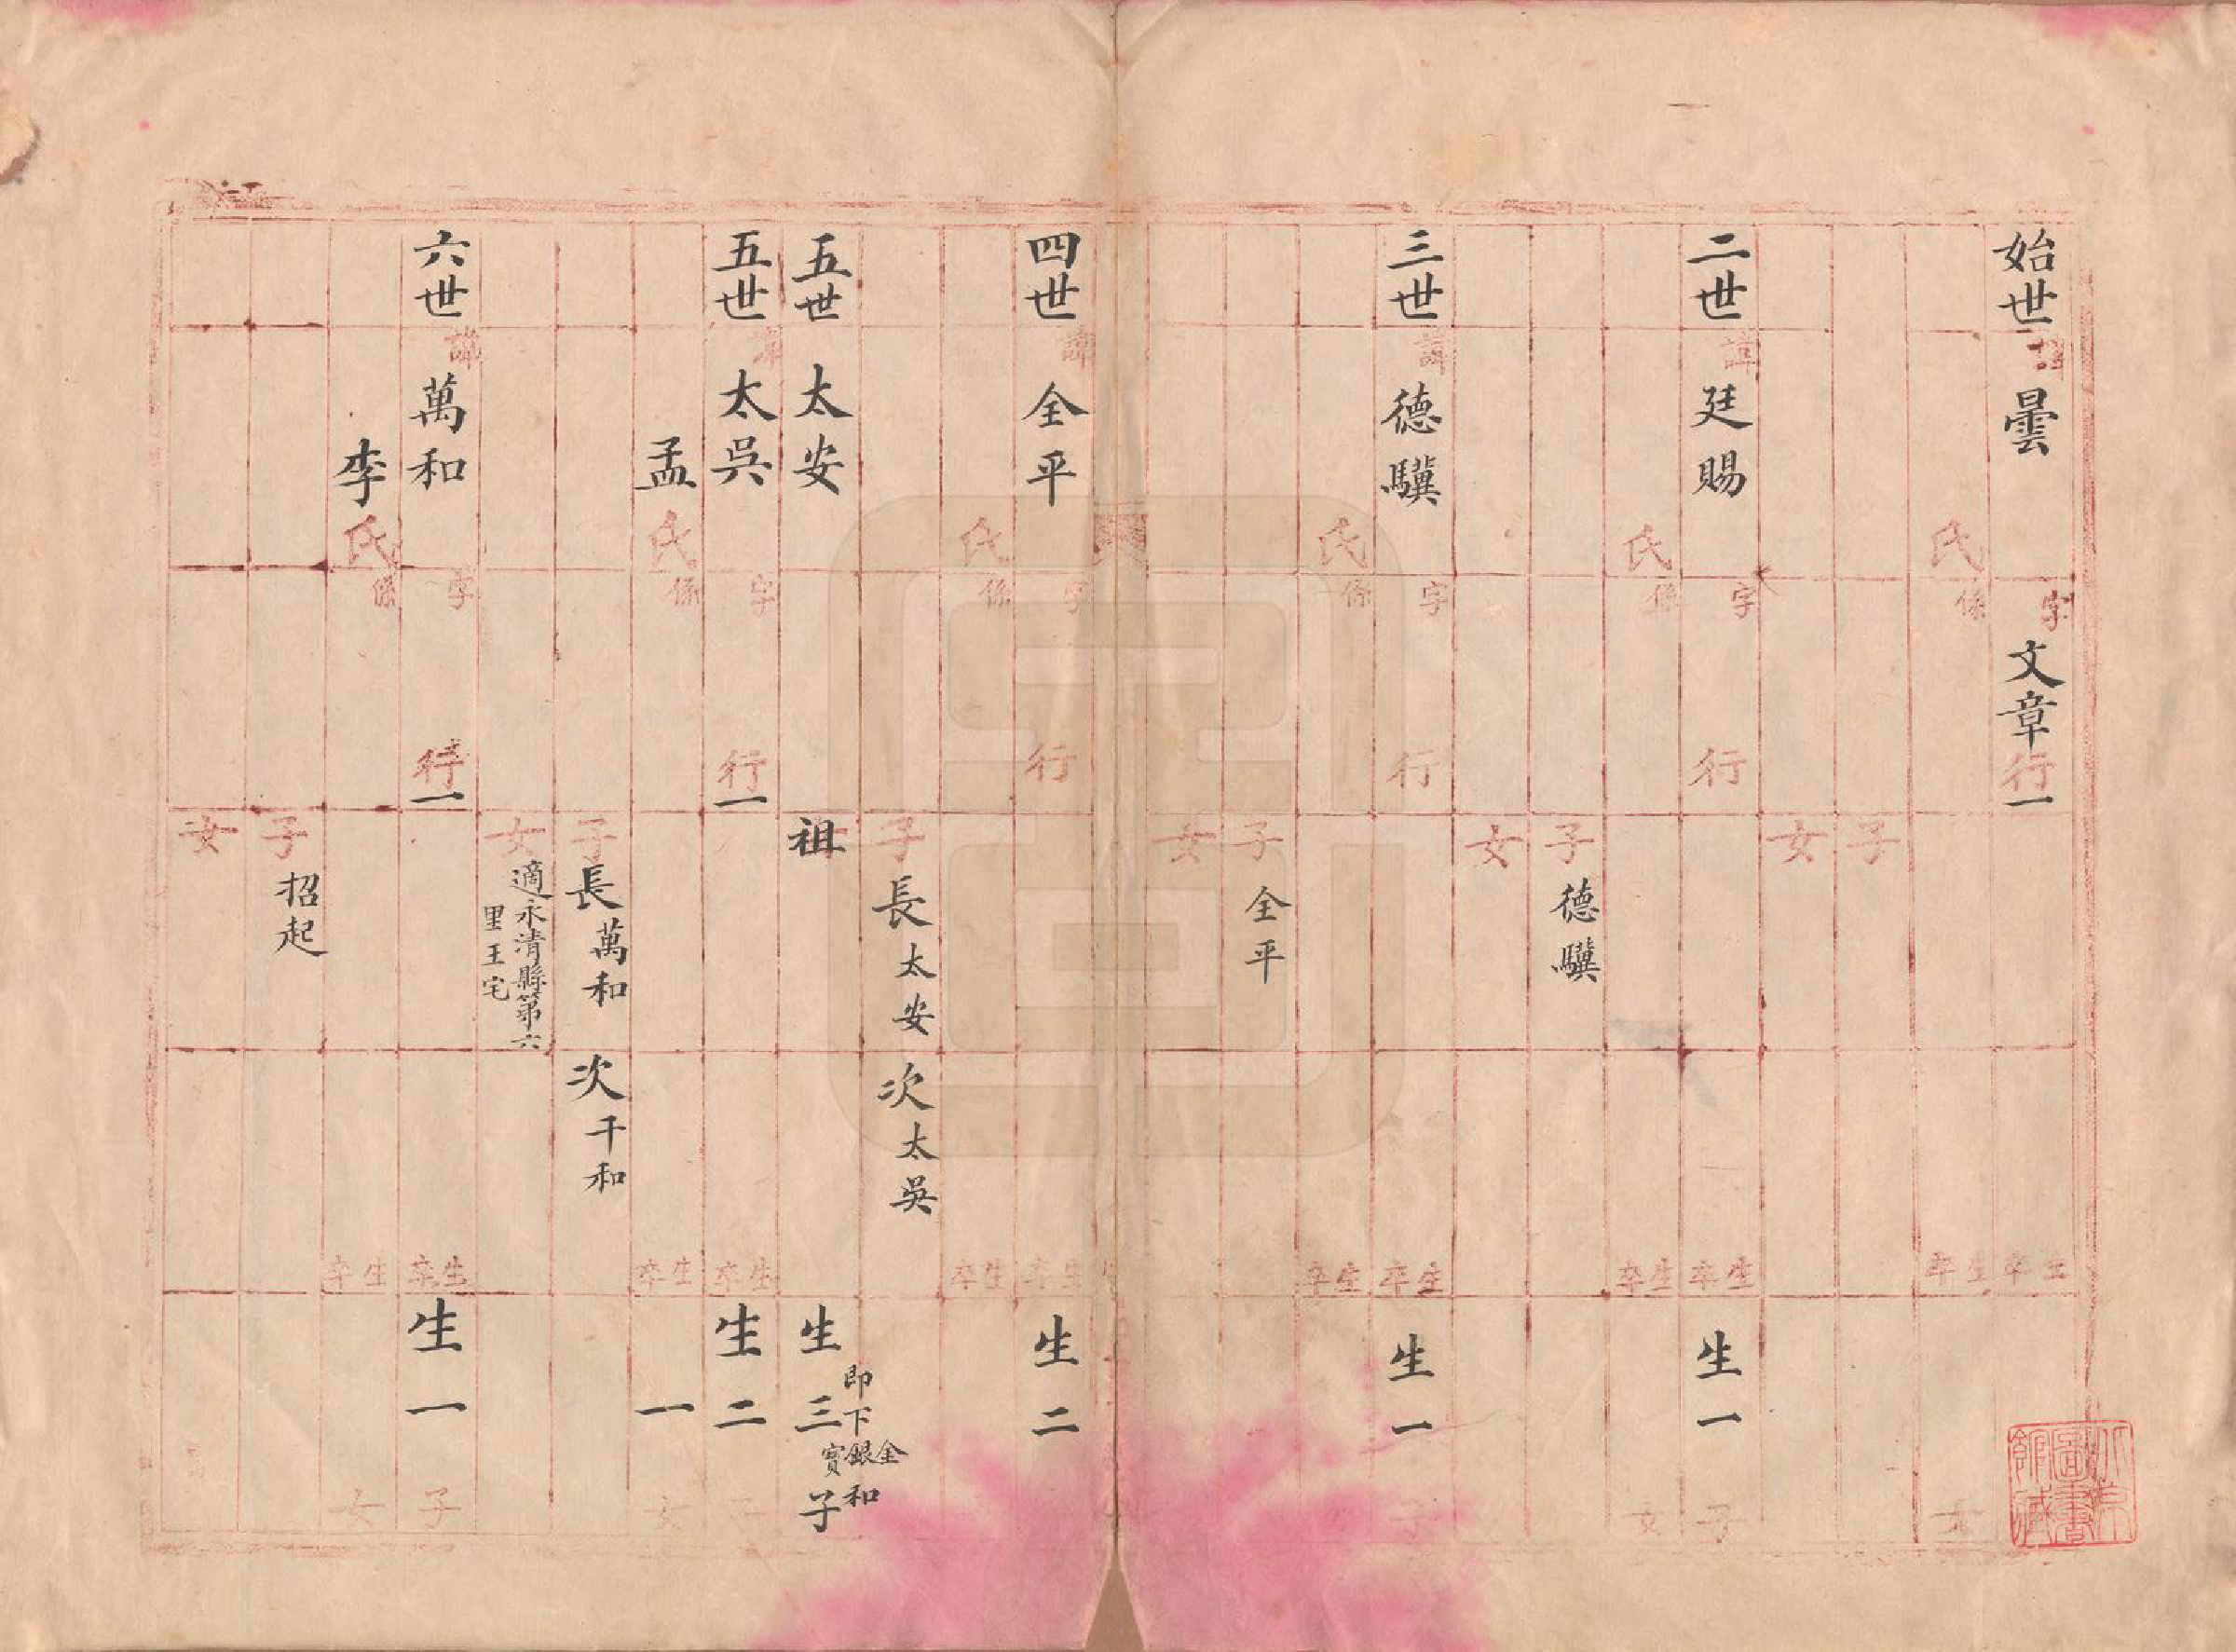 始世 諱 曇 字 文章 行一 生 卒
氏 係 生 卒 女
子
女
二世 諱 廷賜 字 行 生 卒 生一 子
氏 係 生 卒 女
子 德驥
女
三世 諱 德驥 字 行 生 卒 生一 子
氏 係 生 卒
子 全平
女
四世 諱 全平 字 行 生 卒 生二
氏 係 生 卒
子 長太安 次太吳
五世 太安 祖 生三子
即下金銀寶和
五世 諱 太吳 字 行一 生 卒 生二 子
孟氏 係 生 卒 一 女
子 長萬和 次千和
女 適永清縣第六
里王宅
六世 諱 萬和 字 行一 生 卒 生一 子
李氏 係 生 卒 女
子 招起
女
北京圖書館藏